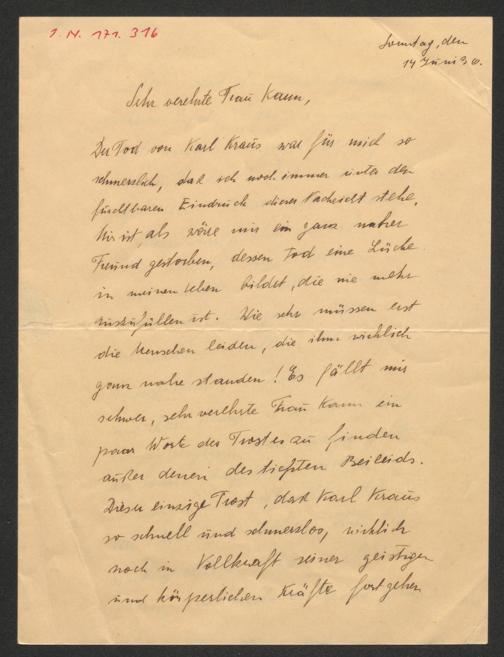 I. N. 171.316
Sonntag, den
14 Juni 36.
Sehr verehrte Frau Kann,
Der Tod von Karl Kraus war für mich so
schmerzlich, daß ich noch immer unter dem
furchtbaren Eindruck dieser Nachricht stehe.
Mir ist, als wäre mir ein ganz naher
Freund gestorben, dessen Tod eine Lücke
in meinem Leben bildet, die nie mehr
auszufüllen ist. Wie sehr müssen erst
die Menschen leiden, die ihm wirklich
ganz nahe standen! Es fällt mir
schwer, sehr verehrte Frau Kann ein
paar Worte des Trostes zu finden
außer denen des tiefsten Beileids.
Dieser einzige Trost, daß Karl Kraus
so schnell und schmerzlos, wirklich
noch in Vollkraft seiner geistigen
und körperlichen Kräfte fortgehen